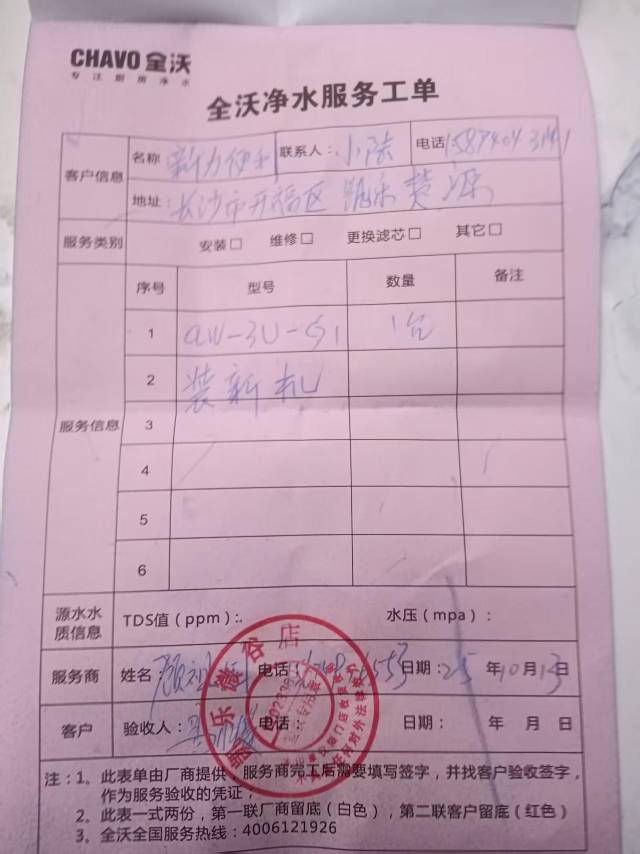 CHAVO 全沃
专注厨房净水
全沃净水服务工单
客户信息 名称 新力便利 联系人：小陈 电话
地址：长沙市开福区
服务类别 安装□ 维修□ 更换滤芯□ 其它□
服务信息 序号 型号 数量 备注
1 QW-3U-G1 1台
2 装新机
3
4
5
6
源水水质信息 TDS值（ppm）: 水压（mpa）：
服务商 姓名： 电话： 日期：25 年10月13日
客户 验收人： 电话： 日期： 年 月 日
注：1、此表单由厂商提供，服务商完工后需要填写签字，并找客户验收签字，
作为服务验收的凭证；
2、此表一式两份，第一联厂商留底（白色），第二联客户留底（红色）
3、全沃全国服务热线：4006121926